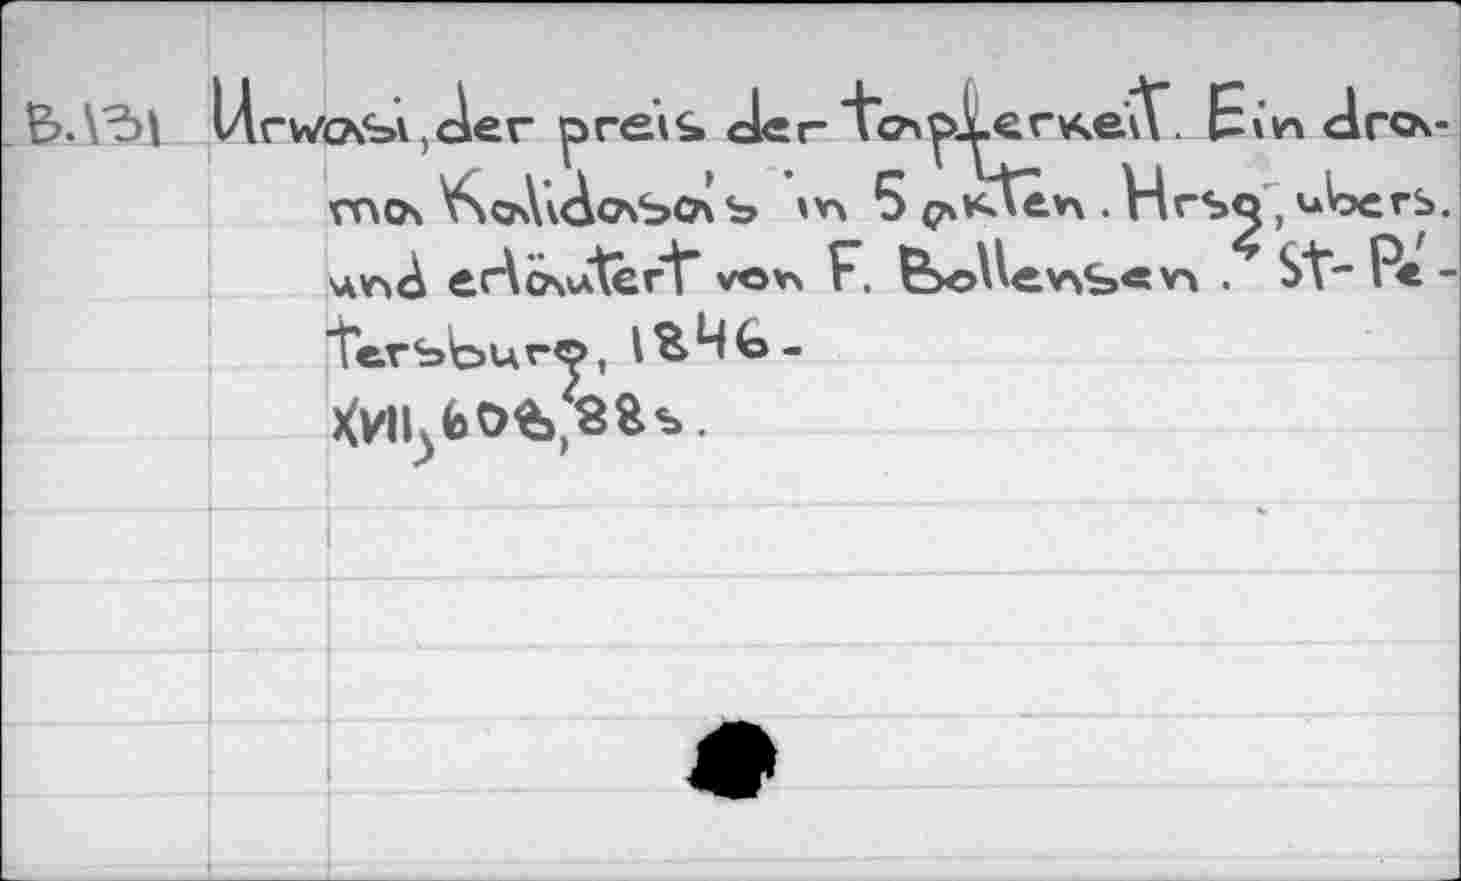 B.131 Urwasi, der preis der tapferkeit. Ein dra-
ma Kalidasa's in 5 akten. Hrsg, übers.
und erläutert von F. Bollensen. St-Pé-
tersburg, 1846-
XVII, 606, 88s.